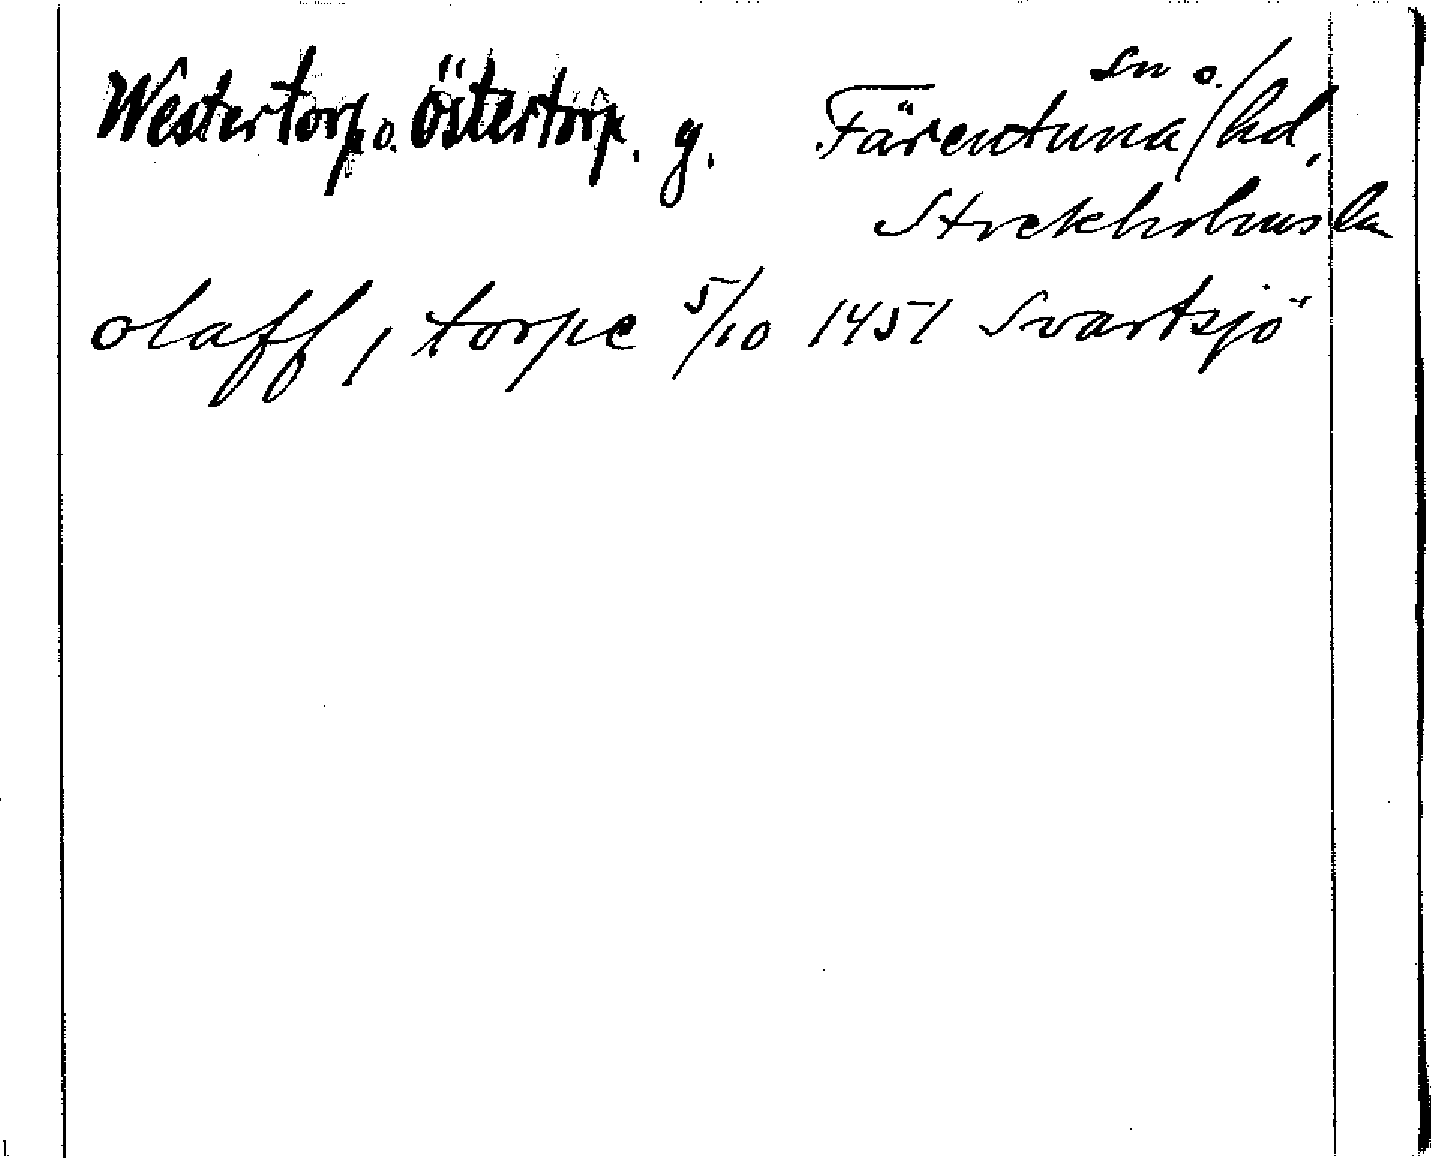 Westertorp o. Östertorp. g. Färentuna sn o./hd,
Stockholms län
olaff i torpe 5/10 1451 Svartsjö